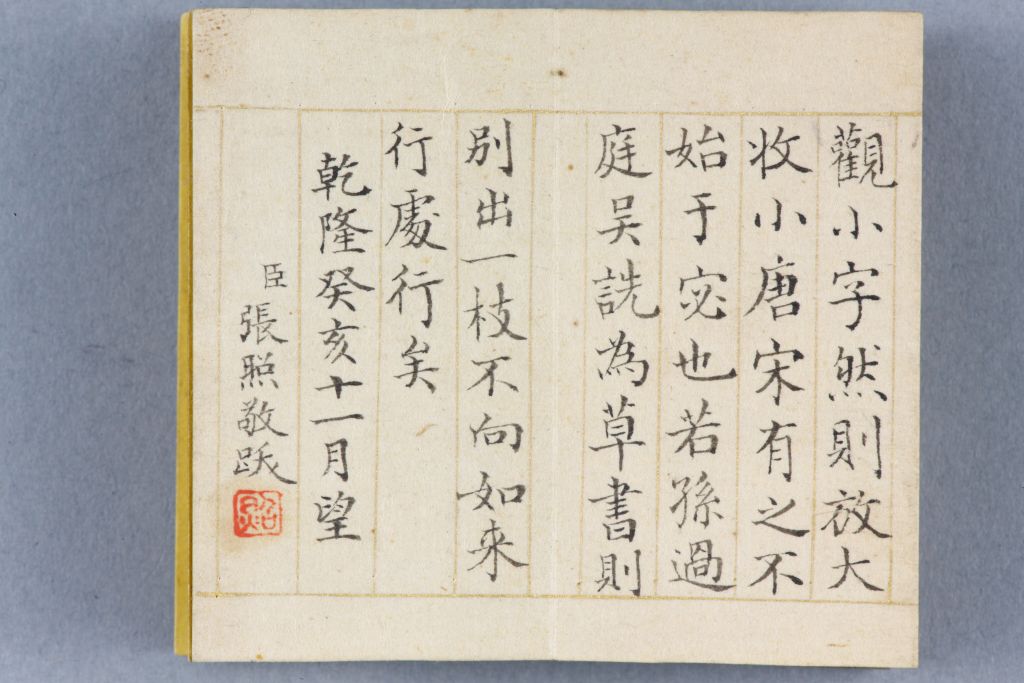 觀小字然則放大
收小唐宋有之不
始于宓也若孫過
庭吴說為草書則
別出一枝不向如来
行處行矣
乾隆癸亥十一月望
臣張照敬跋
照